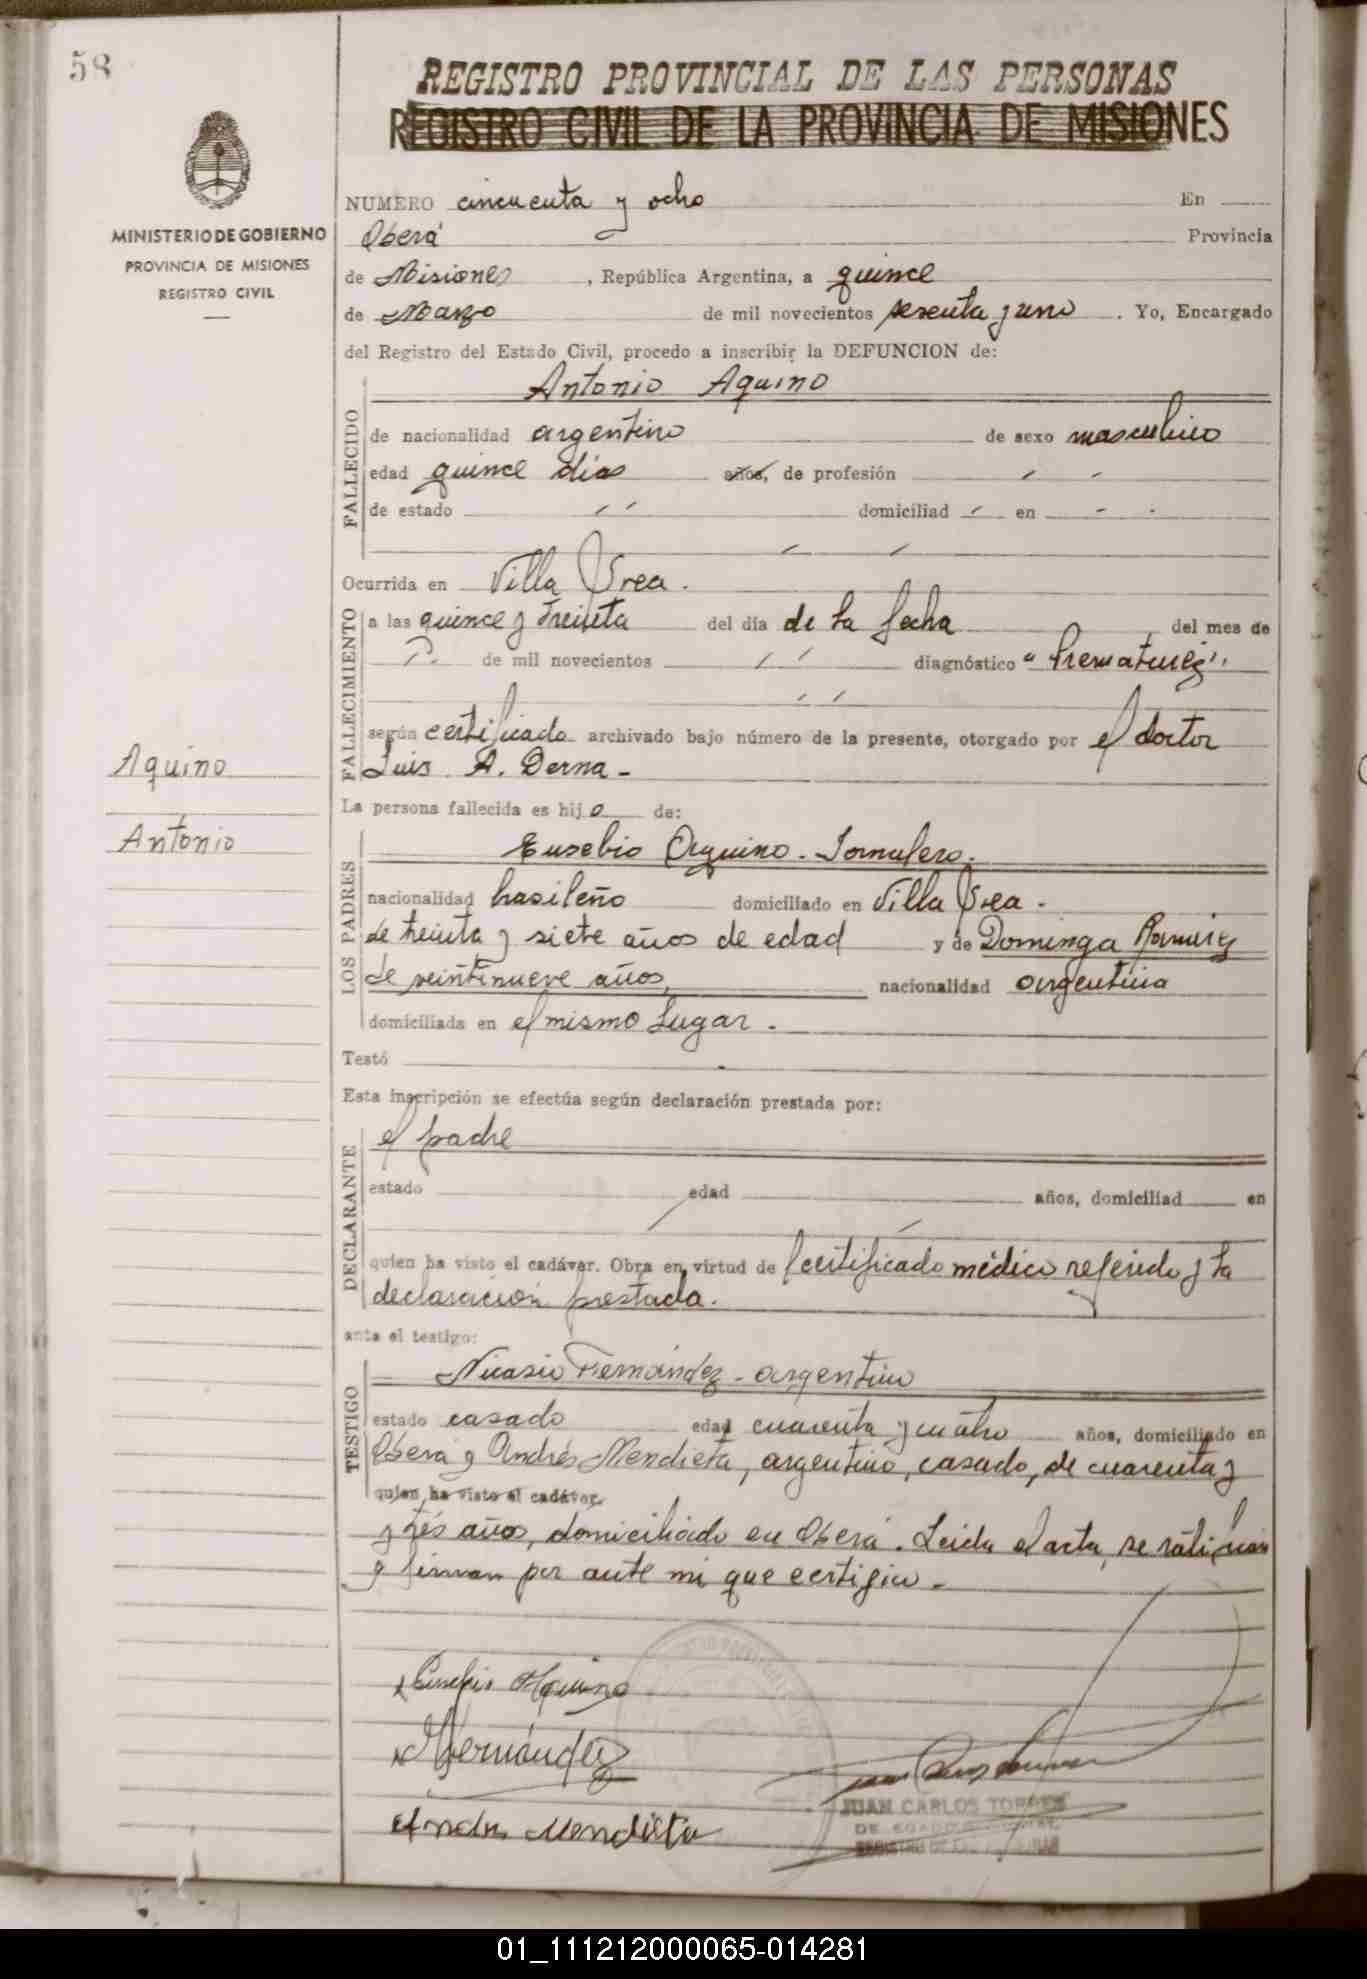 58
REGISTRO PROVINCIAL DE LAS PERSONAS
REGISTRO CIVIL DE LA PROVINCIA DE MISIONES
MINISTERIO DE GOBIERNO
PROVINCIA DE MISIONES
REGISTRO CIVIL
NUMERO cincuenta y ocho En
Oberá Provincia
de Misiones, República Argentina, a quince
de Marzo de mil novecientos sesenta y uno. Yo, Encargado
del Registro del Estado Civil, procedo a inscribir la DEFUNCION de:
Antonio Aquino
FALLECIDO
de nacionalidad argentino de sexo masculino
edad quince días años, de profesión
de estado domiciliad en
Ocurrida en Villa Urea.
FALLECIMIENTO
a las quince y treinta del día de la fecha del mes de
de mil novecientos diagnóstico "Prematurez"
según certificado archivado bajo número de la presente, otorgado por el doctor
Luis A. Derna-
Aquino
Antonio
La persona fallecida es hijo de:
LOS PADRES
Eusebio Aquino - Jornalero.
nacionalidad brasileño domiciliado en Villa Urea.
de treinta y siete años de edad y de Dominga Ramirez
de veintinueve años, nacionalidad argentina
domiciliada en el mismo lugar.
Testó
Esta inscripción se efectúa según declaración prestada por:
DECLARANTE
el padre
estado edad años, domiciliad en
quien ha visto el cadáver. Obra en virtud de certificado médico referido y la
declaración prestada.
ante el testigo:
TESTIGO
Nicasio Fernández - argentino
estado casado edad cuarenta y cuatro años, domiciliado en
Oberá y Andrés Mendieta, argentino, casado, de cuarenta y
quien ha visto el cadáver.
y trés años, domiciliado en Oberá. Leida el acta, se ratifican
y firman por ante mi que certifico.-
Eusebio Aquino
NFernández
Andres Mendieta
JUAN CARLOS TORRES
01_111212000065-014281